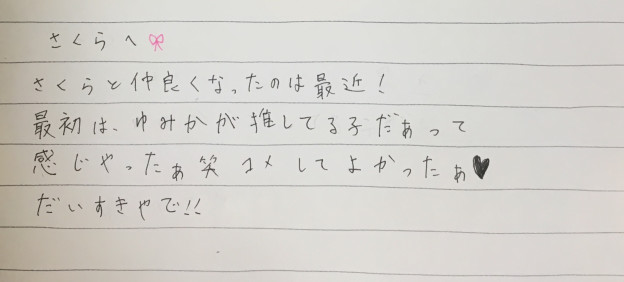 さくらへ🎀
さくらと仲良くなったのは最近！
最初は、ゆみかが推してる子だぁって
感じやったぁ笑 コメしてよかったぁ♥
だいすきやで!!